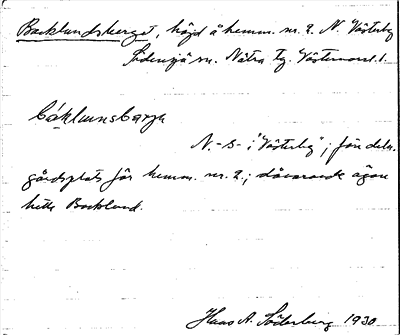 Backlundsberget, höjd å hemm. nr. 2. N. Västerby
Sidensjö sn. Nätra tg. Västernorrl. l.
N.-S- i "Västerby"; före dets.
gårdsplats för hemm. nr. 2.; dåvarande ägare
hette Backlund.
Hans A. Söderberg 1930